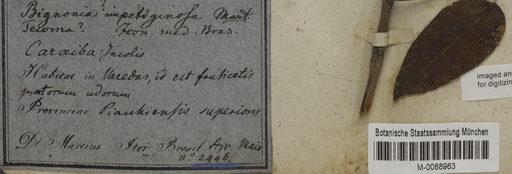 Bignonia? impetiginosa Mart:
Tecoma? Fcon. med. Bras.
Caraiba: Incolis
Habitat in Varebas, id est fruticetis
pratorum udorum
Provinciae Piauhiensis superioris
Dr. Martius Iter Brasil. Apr. Maio
n° 2446.
Imaged an
for digitizin
Botanische Staatssammlung München
M-0088963